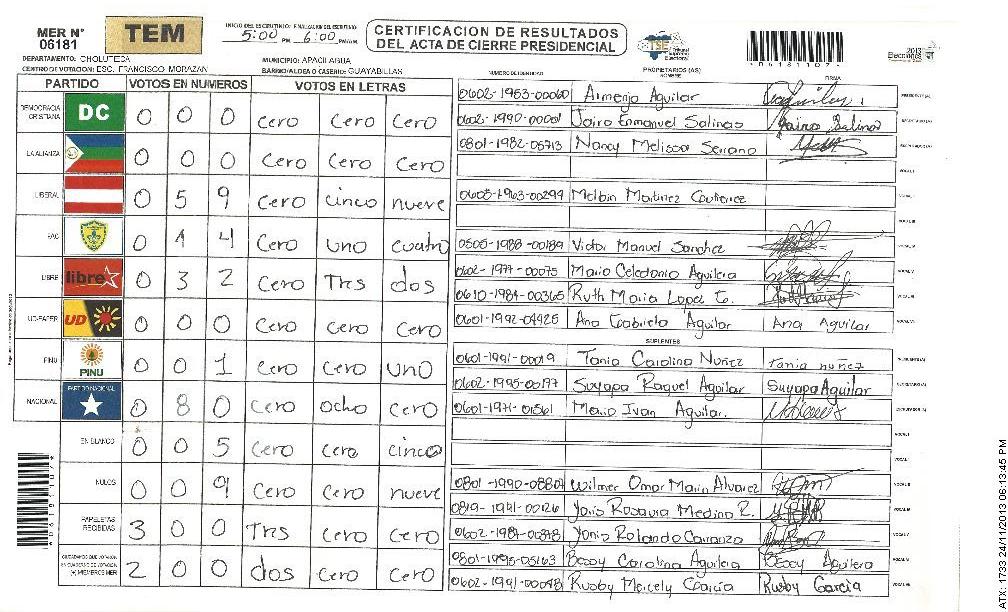 MER N° 06181
TEM
INICIO DEL ESCRUTINIO: 5:00 PM FINALIZACION DEL ESCRUTINIO 6:00 PM/AM
CERTIFICACION DE RESULTADOS
DEL ACTA DE CIERRE PRESIDENCIAL
TSE Tribunal Supremo Electoral
Elecciones 2013
DEPARTAMENTO: CHOLUTECA MUNICIPIO: APACILAGUA
CENTRO DE VOTACION: ESC. FRANCISCO MORAZAN BARRIO/ALDEA O CASERIO: GUAYABILLAS
PARTIDO VOTOS EN NUMEROS VOTOS EN LETRAS
DEMOCRACIA CRISTIANA DC 0 0 0 Cero Cero Cero
LA ALIANZA 0 0 0 Cero Cero Cero
LIBERAL 0 5 9 Cero cinco nueve
PAC 0 1 4 Cero uno cuatro
LIBRE libre 0 3 2 Cero Tres dos
UD-FAPER UD 0 0 0 Cero Cero Cero
PINU PINU 0 0 1 Cero Cero uno
NACIONAL PARTIDO NACIONAL 0 8 0 Cero ocho Cero
EN BLANCO 0 0 5 Cero Cero cinco
NULOS 0 0 9 Cero Cero nueve
PAPELETAS RECIBIDAS 3 0 0 Tres Cero Cero
CIUDADANOS QUE VOTARON EN CUADERNO DE VOTACION (+) MIEMBROS MER 2 0 0 dos Cero Cero
NUMERO DE IDENTIDAD PROPIETARIOS (AS) NOMBRE FIRMA
0602-1953-00060 Armenjo Aguilar PRESIDENTE (A)
0602-1990-00061 Jairo Enmanuel Salinas Jairo Salinas SECRETARIO (A)
0801-1982-05713 Nancy Melissa Serrano ESCRUTADOR (A)
VOCAL I
0605-1963-00299 Melbin Martinez Gutierrez
0505-1988-00189 Victor Manuel Sanchez
0602-1977-00075 Mario Celedonio Aguilera
0610-1984-00365 Ruth Maria Lopez
0601-1992-04425 Ana Gabriela Aguilar Ana Aguilar
SUPLENTES
0601-1991-00019 Tania Carolina Nuñez Tania nuñez
0602-1995-00177 Suyapa Raquel Aguilar Suyapa Aguilar
0601-1971-01561 Mario Ivan Aguilar.
0801-1990-08804 Wilmer Omar Marin Alvarez
0819-1991-00126 Medina R.
Rolando Carranza
0801-1995-05163 Bessy Carolina Aguilera Bessy Aguilera
0602-1991-00048 Rusby Marcely Garcia Rusby Garcia
ATX: 1733 24/11/2013 06:13:45 PM